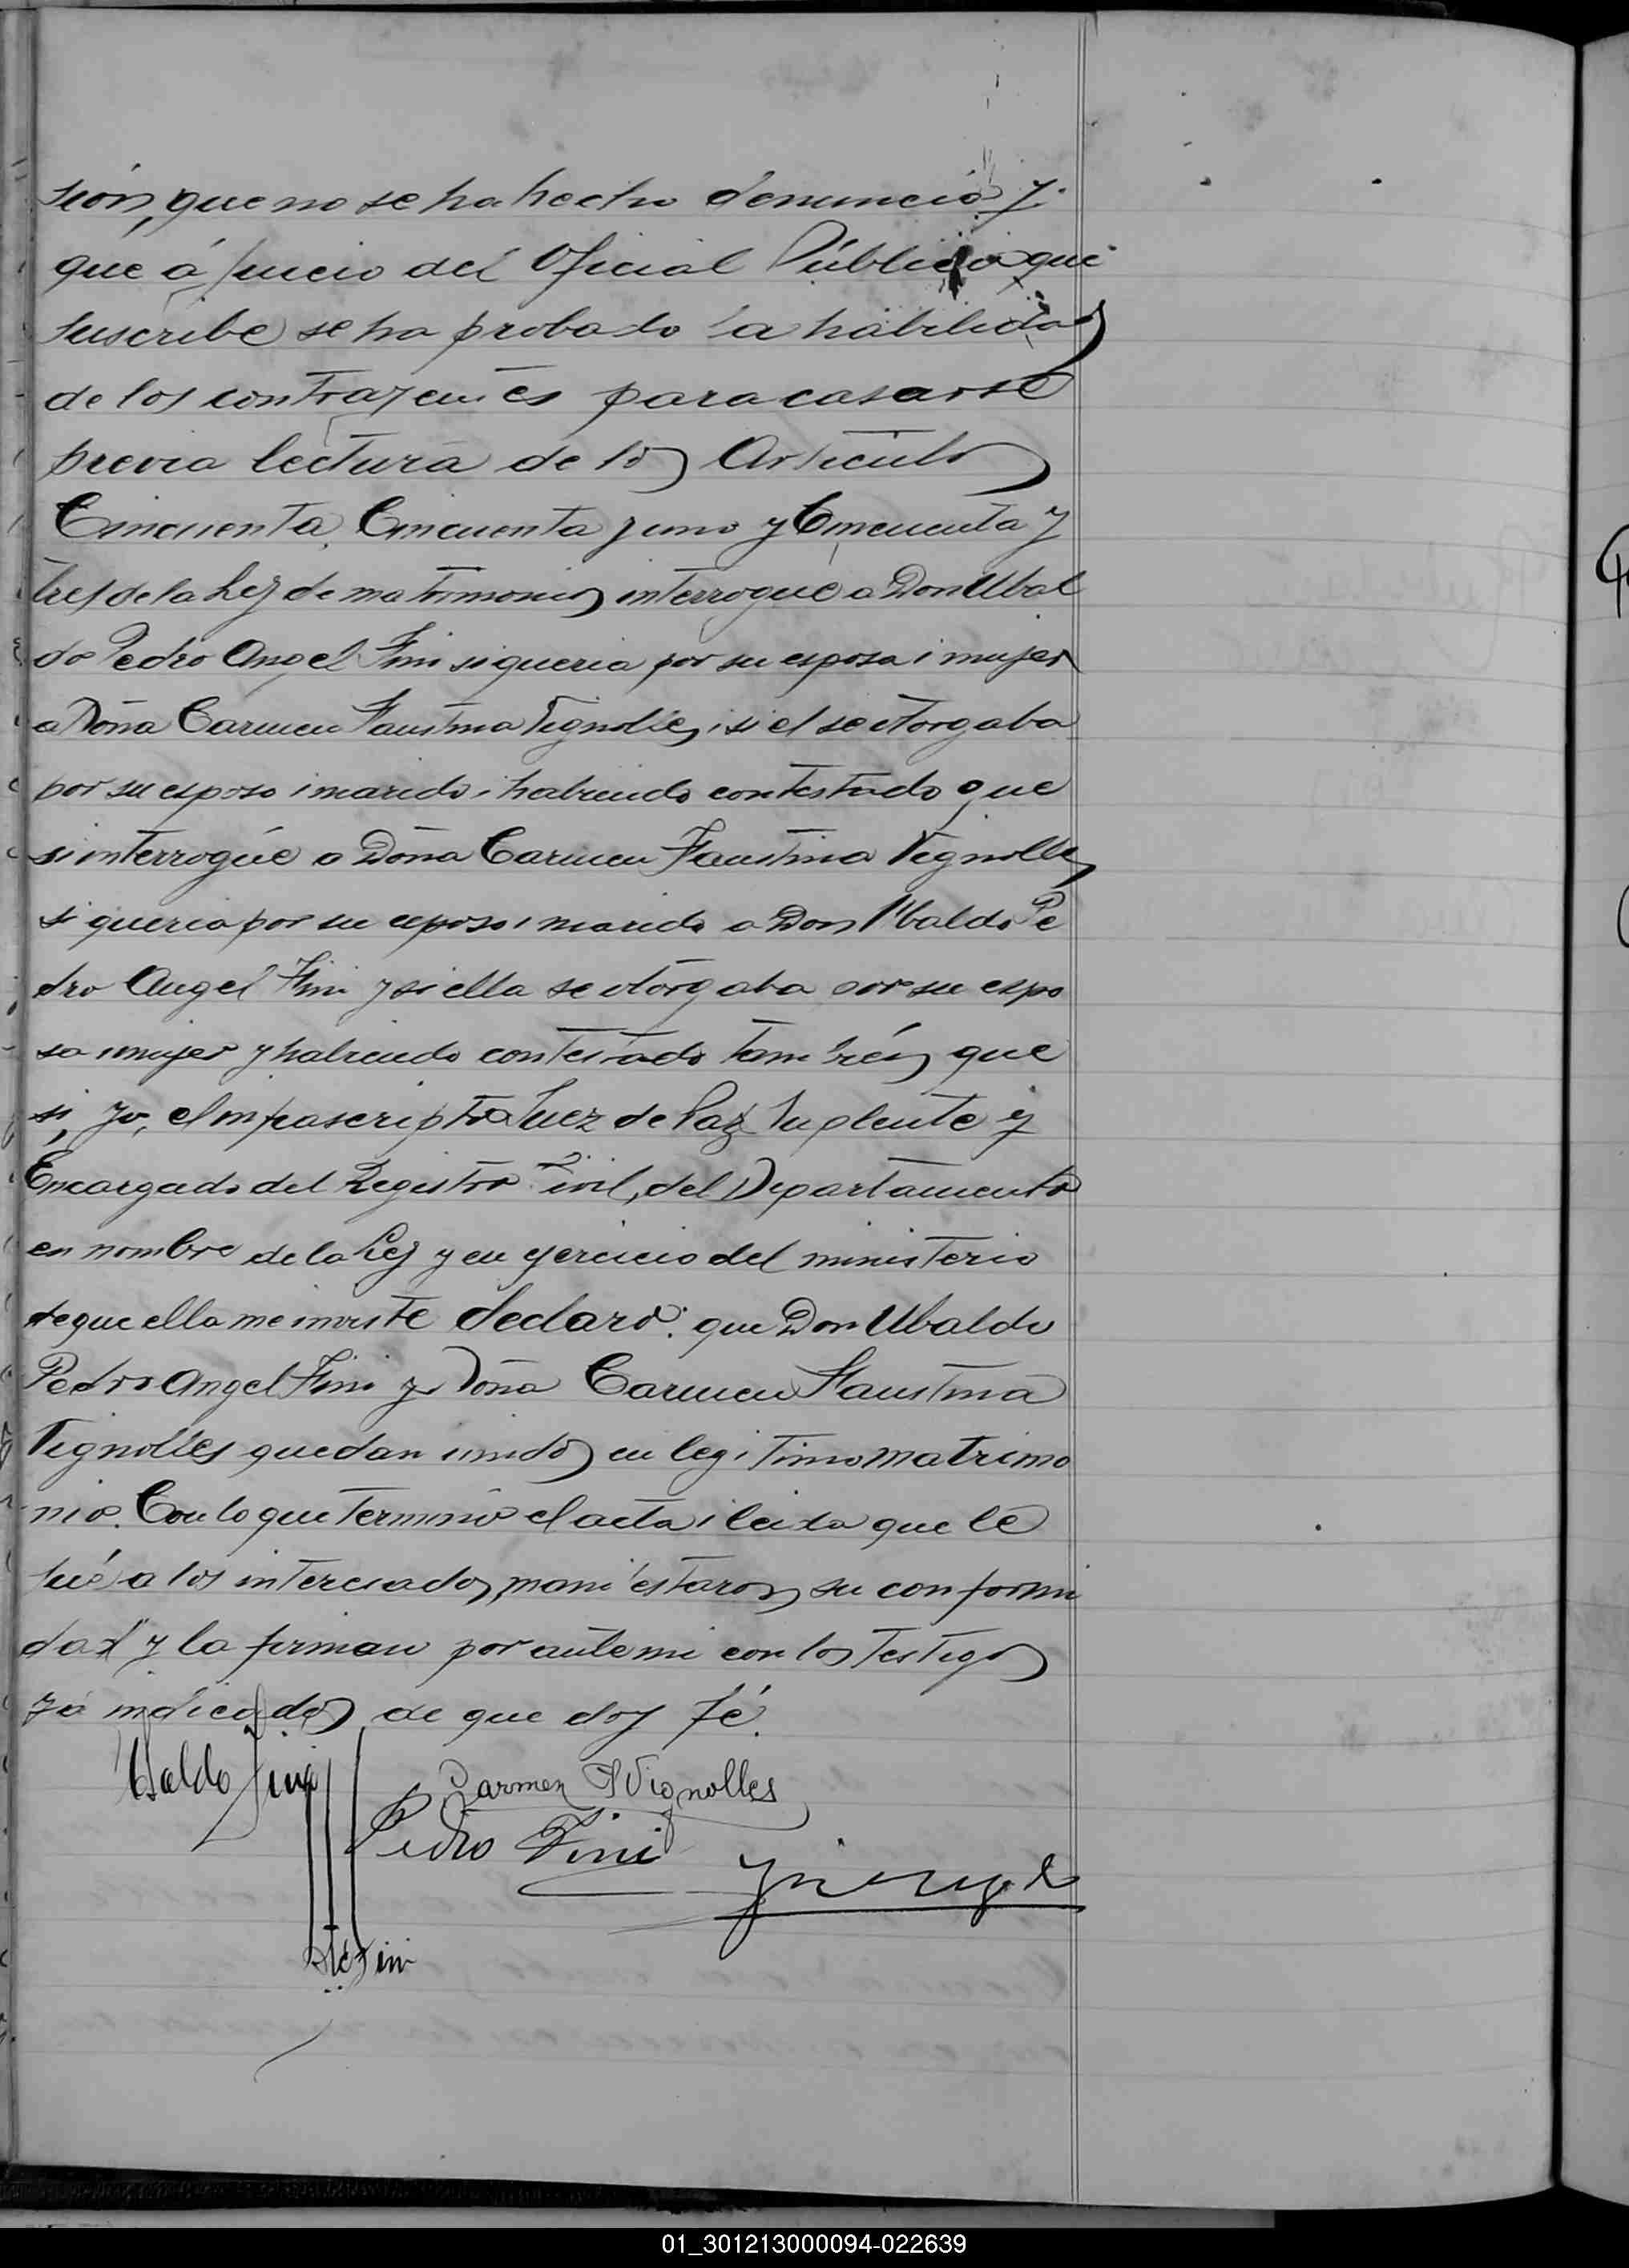 sion, que no se ha hecho denuncia y
que á juicio del Oficial Público que
suscribe se ha probado la habilidad
de los contrayentes para casarse
previa lectura de los Articulos
Cincuenta, Cincuenta y uno y Cincuenta y
tres de la Ley de matrimonio, interrogué a Don Ubal
do Pedro Angel Fini si queria por su esposa i mujer
a Doña Carmen Faustina Vignolles, i si el se otorgaba
por su esposo i marido i habiendo contestado que
si interrogué a Doña Carmen Faustina Vignolles
si queria por su esposo i marido a Don Ubaldo Pe
dro Angel Fini y si ella se otorgaba por su espo
sa i mujer y habiendo contestado también que
si, yo, el infrascripto Juez de Paz Suplente y
Encargado del Registro Civil, del Departamento
en nombre de la Ley y en ejercicio del ministerio
de que ella me inviste declaro: que Don Ubaldo
Pedro Angel Fini y Doña Carmen Faustina
Vignolles quedan unidos en legitimo matrimo
nio. Con lo que terminó el acta i leida que le
fué a los interesados, manifestaron su conformi
dad y la firman por ante mi con los testigos
ya indicados de que doy fé.
Ubaldo Fini
Carmen F Vignolles
Pedro Fini
Fini
01_301213000094-022639